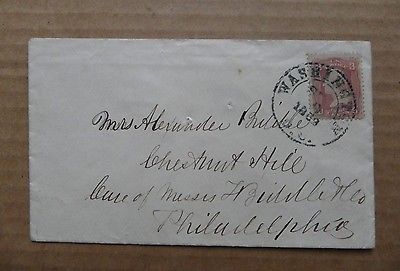 WASHINGTON
D.C.
1863
3
Mrs Alexander Biddle
Chestnut Hill
Care of Messrs Biddle & Co
Philadelphia